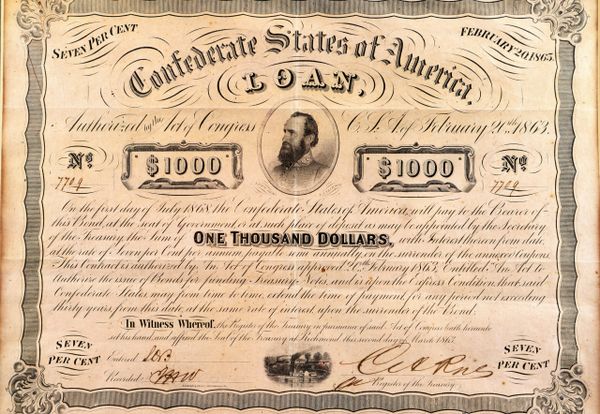 SEVEN PER CENT
FEBRUARY 20, 1863.
Confederate States of America.
LOAN,
Authorized by the Act of Congress C. S. A. of February 20th 1863.
No
7709
$1000
$1000
No
7709
On the first day of July 1868, the Confederate States of America, will pay to the Bearer of
this Bond, at the seat of Government or at such place of deposit as may be appointed by the Secretary
of the Treasury, the Sum of ONE THOUSAND DOLLARS, with Interest thereon from date,
at the rate of Seven per Cent per annum, payable semi annually, on the surrender of the annexed Coupons
This Contract is authorized by An Act of Congress approved 20th February 1863, Entitled "An Act to
Authorize the issue of Bonds for funding Treasury Notes, and is upon the Express Condition, that said
Confederate States may from time to time, extend the time of payment, for any period not exceeding
thirty years, from this date, at the same rate of interest upon the surrender of the Bond.
In Witness Whereof, the Register of the Treasury in pursuance of said Act of Congress hath hereunto
set his hand, and affixed the Seal of the Treasury at Richmond this second day of March 1863
SEVEN PER CENT
Entered
Recorded
Register of the Treasury
SEVEN PER CENT